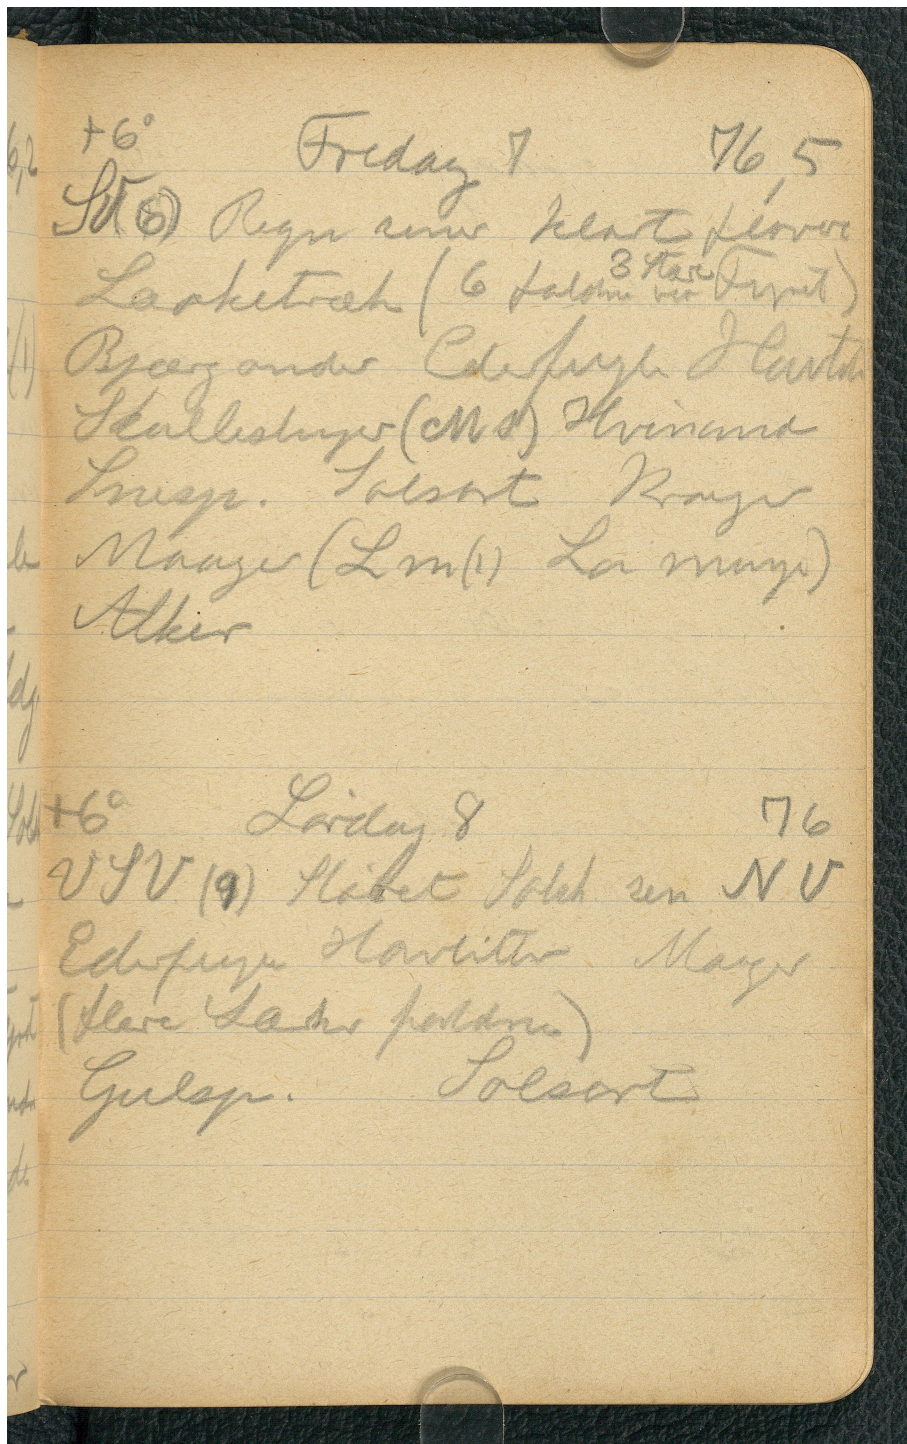 +6° Fredag 7 76,5
SV (6) Regn senere klart flere
Lærketræk (6 faldne 3 Stære ved Fyret)
Bjergænder Ederfugle Havlit
Skallesluger (M s) Hvinand
Snesp. Solsort Krager
Maager (Lm (1) La mange)
Alker
+6° Lørdag 8 76
VSV (9) Sløret Solsk sen NV
Ederfugle Havlitter Maager
(flere Lærker faldne)
Gulsp. Solsort